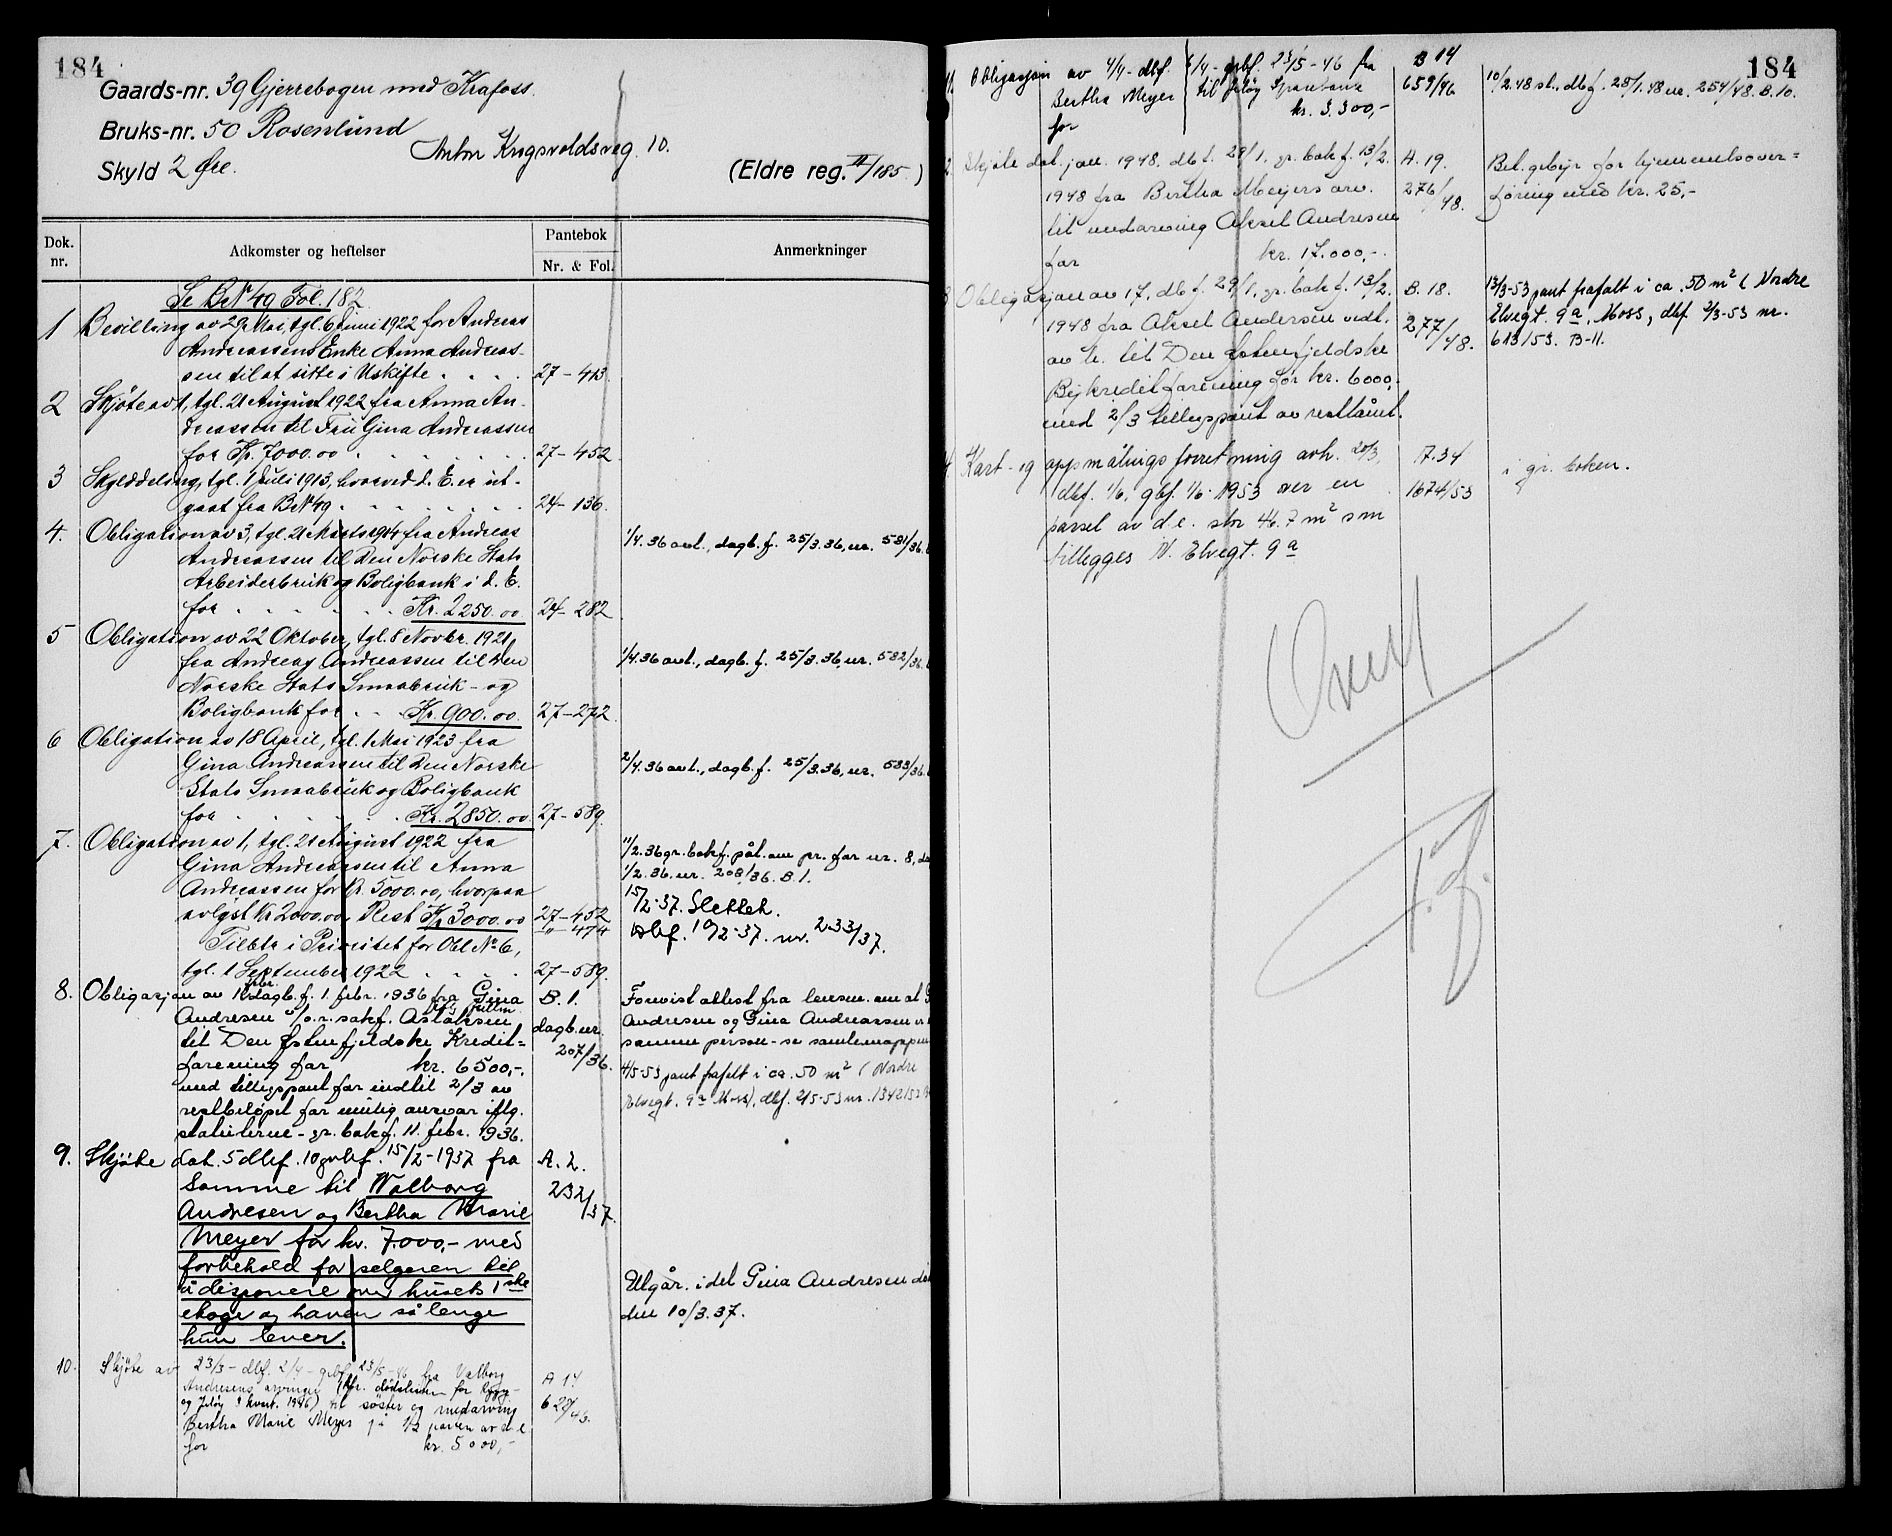 184
Gaards-nr. 39 Gjerrebogen med Krafoss.
Bruks-nr. 50 Rosenlund
Anton Krogsvoldsveg. 10.
Skyld 2 Øre.
(Eldre reg. II/185.)
Dok. nr.
Adkomster og heftelser
Pantebok
Nr. & Fol.
Anmerkninger
Se BrNo 49 Fol. 182
1 Bevilling av 29 Mai, tgl. 6 Juni 1922 for Andreas
Andreassens Enke Anna Andreas-
sen til at sitte i Uskifte . . . . 27-413
2 Skjøte av 1, tgl. 21 August 1922 fra Anna An-
dreassen til Fru Gina Andreassen
for Kr. 7000.00 . . . . . . 27-452
3 Skylddeling, tgl. 1 Juli 1913, hvorved d. E. er ut-
gaat fra BrNo 49 . . . . . . . 24-136.
4. Obligation av 3, tgl. 21 Marts 1914 fra Andreas
Andreassen til Den Norske Stats
Arbeiderbruk og Boligbank i d. E.
for . . . . . . Kr. 2250.00 24-282
1/4.36 avl., dagb.f. 25/3.36, nr. 581/36.
5 Obligation av 22 Oktober, tgl. 8 Novbr. 1921
fra Andreas Andreassen til Den
Norske Stats Smaabruk- og
Boligbank for . . Kr. 900.00. 27-272
1/4.36 avl., dagb.f. 25/3.36, nr. 582/36.
6 Obligation av 18 April, tgl. 1 Mai 1923 fra
Gina Andreassen til Den Norske
Stats Smaabruk og Boligbank
for . . . . . . Kr. 2850.00 27-589.
2/4.36 avl., dagb.f. 25/3.36, nr. 583/36.
7. Obligation av 1, tgl. 21 August 1922 fra
Gina Andreassen til Anna
Andreassen for Kr. 5000.00, hvorpaa
avløst Kr 2000.00. Rest Kr 3000.00 27-452
" - 474
Tilbtr i Prioritet for Obl No 6,
tgl. 1 September 1922 . . . . 27-589.
11/2.36 gr.bokf. påt. om pr. for nr. 8,
1/2.36. nr. 208/36. B.1.
15/2-37. Slettet.
Dbf. 10/2-37. nr. 233/37.
8. Obligasjon av 1 febr. dagb.f. 1. febr. 1936 fra Gina
Andresen v/o.r.sakf. Aslaksen
til Den Østenfjeldske Kredit=
forening for kr. 6500,-.
med tilleggspant for indtil 2/3 av
restbeløpet for mulig ansvar iflg.
statuterne - gr. bokf. 11. febr. 1936.
B. 1.
dagb.nr.
207/36.
Forevist attest fra lensm. om at
Andresen og Gina Andreassen er
samme person - se samlemappen
4/5-53 pant frafalt i ca. 50 m2 (Nordre
Elvegt. 9a Moss), dbf. 2/5-53 nr. 1342/53
9. Skjøte dat. 5 dbf. 10 grbf. 15/2-1937 fra
Samme til Walborg
Andresen og Bertha Marie
Meyer for kr. 7.000,- med
forbehold for selgeren til
å disponere over husets 1ste
etage og haven så lenge
hun lever.
A. 2.
232/37.
Utgår. idet Gina Andresen
den 10/3.37.
10. Skjøte av 23/3 - dbf. 2/4 - grbf. 23/5-46 fra Valborg
Andresens arvinger (kfr. dødslisten for Rygge
og Jeløy 1 kvart. 1946) til søster og medarving
Bertha Marie Meyer på 1/2 parten av d.e.
for kr. 5000,-
A 14
628/46.
184
11. Obligasjon av 4/4 - dbf. 4/4 - grbf. 23/5-46 fra
Bertha Meyer til Jeløy Sparebank
for kr. 3.300,-
B 14
659/46
10/2.48 sl., dbf. 28/1.48 nr. 254/48. B.10.
2. Skjøte dat. jan. 1948. dbf. 29/1. gr.bokf. 13/2.
1948 fra Bertha Meyers arv.
til medarving Aksel Andresen
for kr. 17.000,-.
A. 19.
276/48.
Bet. gebyr for hjemmelsover=
føring med kr. 25,-
3 Obligasjon av 17. dbf. 29/1. gr.bokf. 13/2.
1948 fra Aksel Andersen vedt.
av h. til Den Østenfjeldske
Bykreditforening for kr. 6000,-
med 2/3 tilleggspant av restlånet.
B. 18.
277/48.
13/3-53 pant frafalt i ca. 50 m2 (Nordre
Elvegt. 9a, Moss, dbf. 3/3-53 nr.
613/53. B-11.
4 Kart- og oppmålingsforretning avh. 20/3,
dbf. 1/6. gbf. 1/6. 1953 over en
parsel av d.e. stor 46.7 m2 som
tillegges N. Elvegt. 9a
7.34
1674/53
i gr. boken.